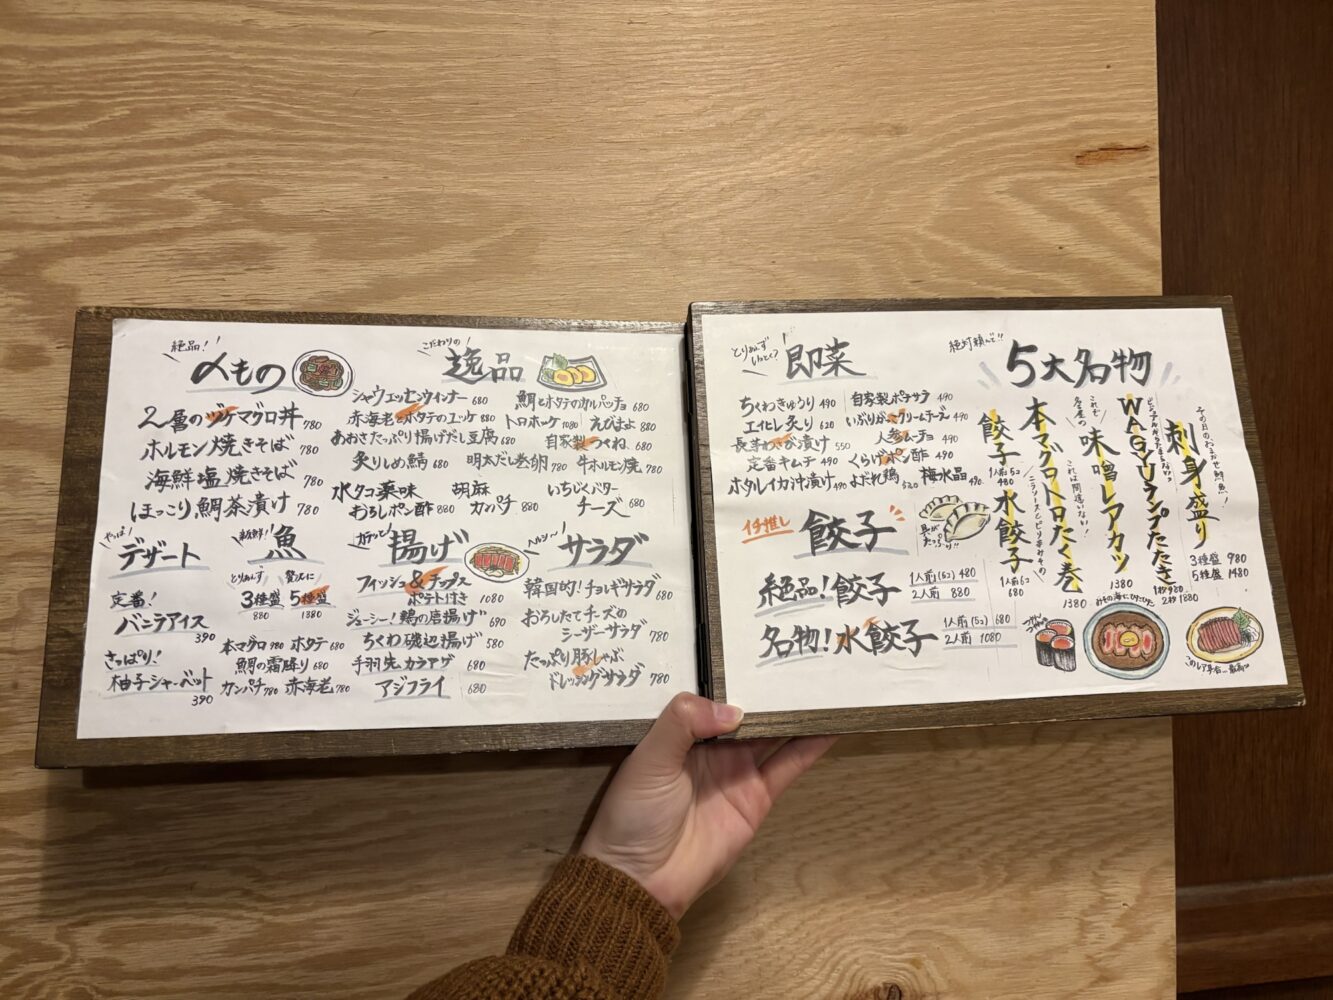 絶品!
〆もの
2層のヅケマグロ丼 780
ホルモン焼きそば 780
海鮮塩焼きそば 780
ほっこり鯛茶漬け 780
こだわりの
逸品
シャウエッセンウインナー 680
赤海老とホタテのユッケ 880
あおさたっぷり揚げだし豆腐 680
炙りしめ鯖 680
水タコ薬味おろしポン酢 880
鯛とホタテのカルパッチョ 680
トロホッケ 1080
えびまよ 880
自家製つくね 680
明太だし巻卵 780
牛ホルモン焼 780
胡麻カンパチ 880
いちじくバターチーズ 680
やっぱ!
デザート
定番!
バニラアイス
390
さっぱり!
柚子シャーベット
390
新鮮!
魚
とりあえず
3種盛
880
贅沢に
5種盛
1380
本マグロ 980 ホタテ 680
鯛の霜降り 680
カンパチ 780 赤海老 780
ガブッと!
揚げ
フィッシュ&チップス
ポテト付き 1080
ジューシー!鶏の唐揚げ 690
ちくわ磯辺揚げ 580
手羽先カラアゲ 680
アジフライ 680
ヘルシ〜
サラダ
韓国的!チョレギサラダ 680
おろしたてチーズの
シーザーサラダ 780
たっぷり豚しゃぶ
ドレッシングサラダ 780
とりあえず
即菜
ちくわきゅうり 490
エイヒレ炙り 620
長芋わさび漬け 550
定番キムチ 490
ホタルイカ沖漬け 490
自家製ポテサラ 490
いぶりがっこクリームチーズ 490
人参ムーチョ 490
くらげポン酢 490
よだれ鶏 520
梅水晶 490
イチ推し
餃子
具がたっぷり!!
絶品!餃子
1人前(5コ) 480
2人前 880
名物!水餃子
1人前(5コ) 680
2人前 1080
絶対頼んで!!
5大名物
その日のおまかせ鮮魚!
刺身盛り
3種盛 980
5種盛 1480
WAGYUランプたたき
1枚980
2枚1880
これぞ名古屋の
味噌レアカツ
1380
これは間違いない!
本マグロトロたく巻
1380
餃子
1人前5コ
480
水餃子
1人前5コ
680
みその海にひたひた
このレア具合…最高